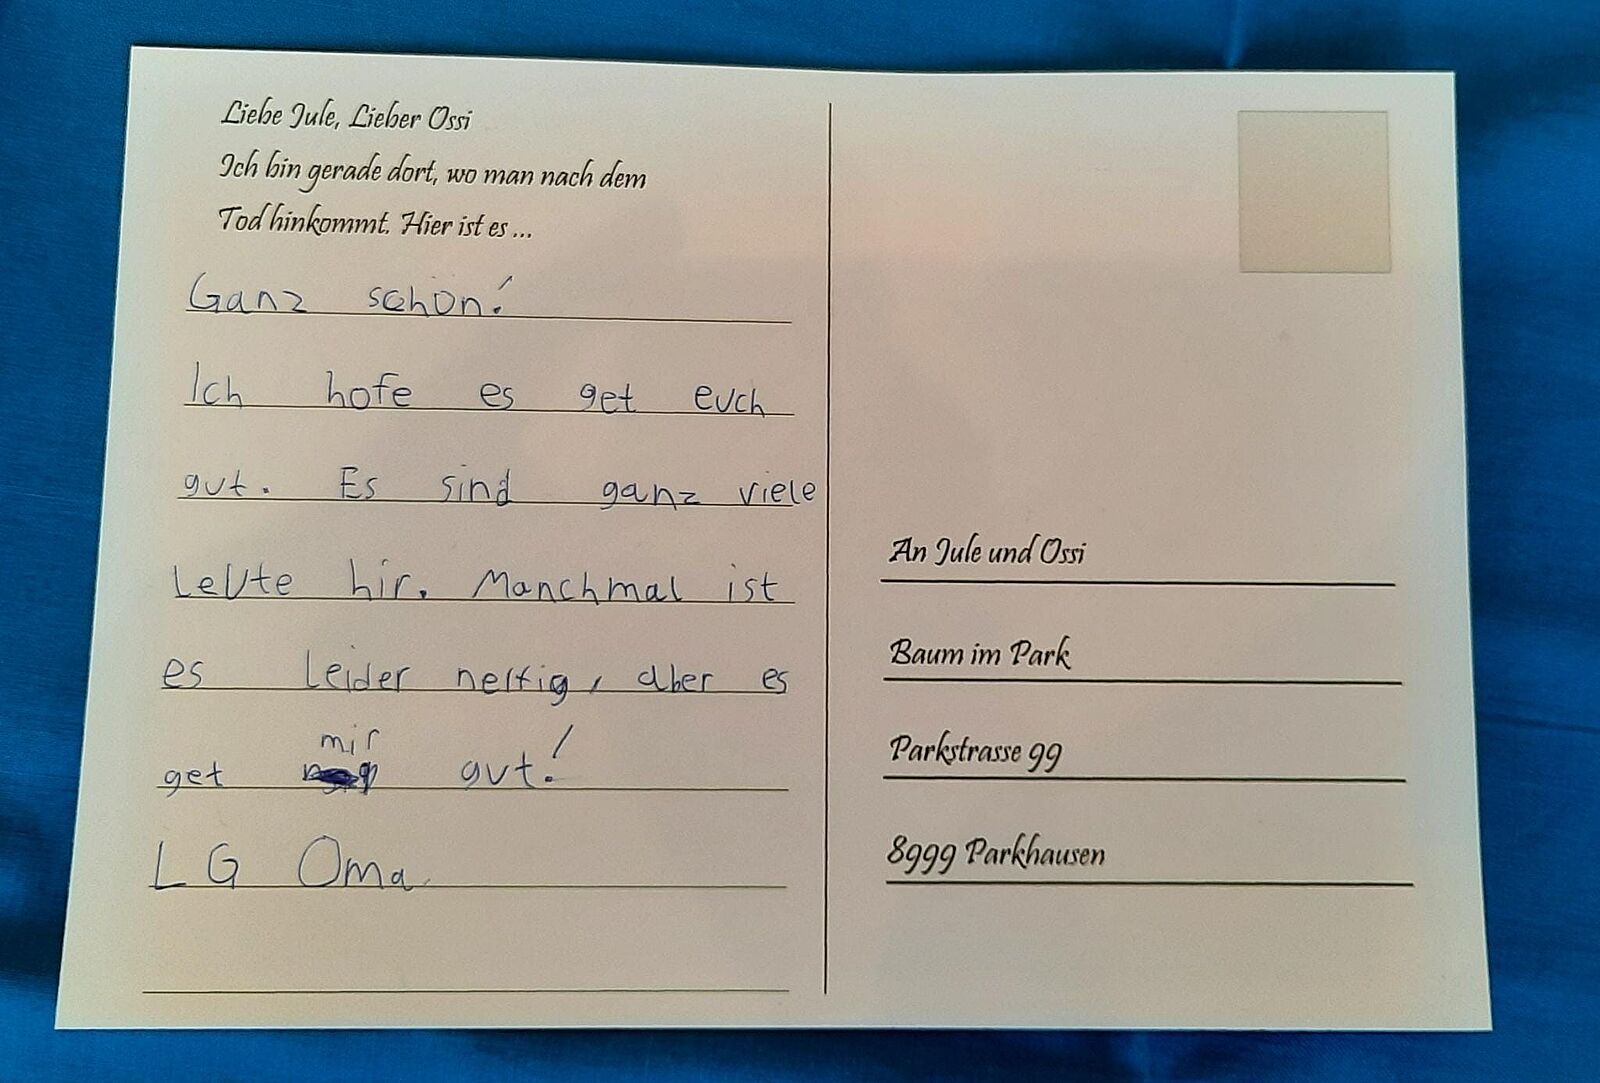 Liebe Jule, Lieber Ossi
Ich bin gerade dort, wo man nach dem
Tod hinkommt. Hier ist es ...
Ganz schön!
Ich hofe es get euch
gut. Es sind ganz viele
Leute hir. Manchmal ist
es leider neltig, aber es
mir
get gut!
LG Oma
An Jule und Ossi
Baum im Park
Parkstrasse 99
8999 Parkhausen